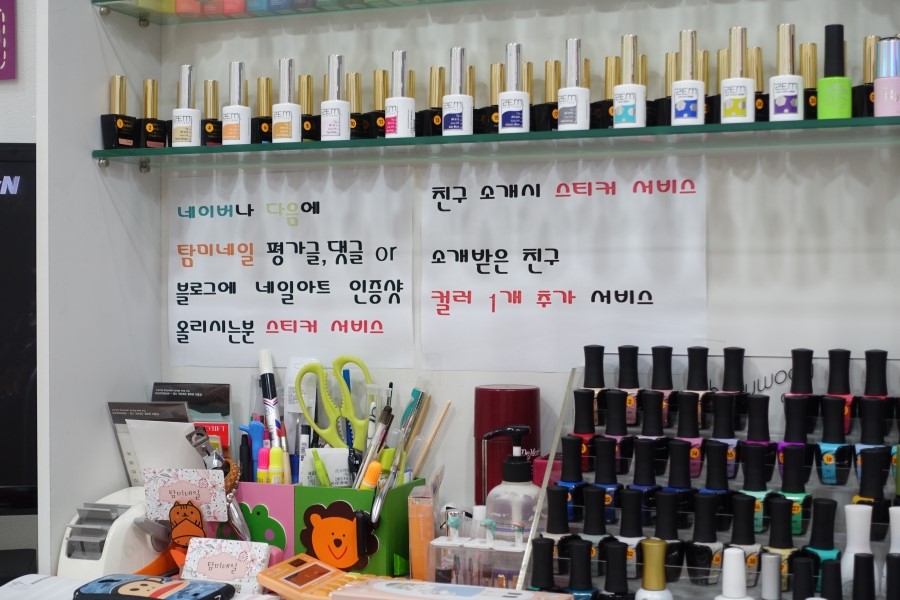 네이버나 다음에
탐미네일 평가글, 댓글 or
블로그에 네일아트 인증샷
올리시는분 스티커 서비스
친구 소개시 스티커 서비스
소개받은 친구
컬러 1개 추가 서비스
탐미네일
탐미네일